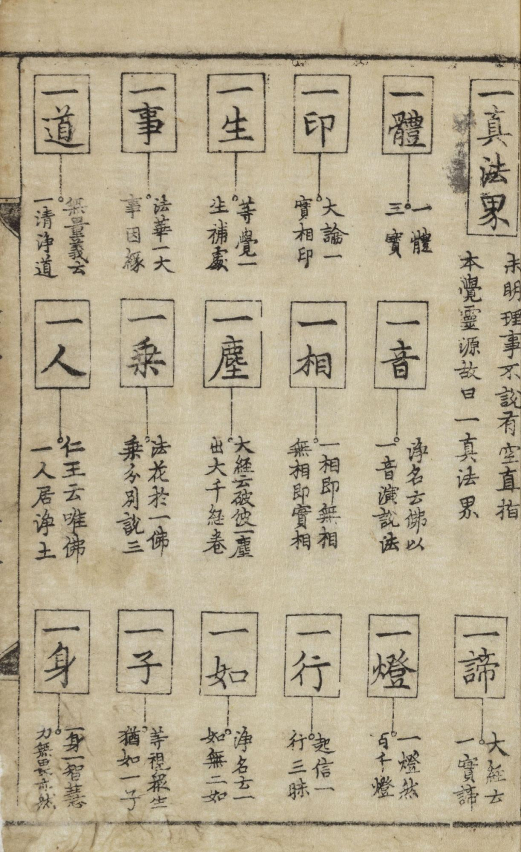 一真法界
未明理事不說有空直指
本覺靈源故曰一真法界
一諦
大經云
一實諦
一體
一體
三寶
一音
淨名云佛以
一音演說法
一燈
一燈然
百千燈
一印
大論一
實相印
一相
一相即無相
無相即實相
一行
起信一
行三昧
一生
等覺一
生補處
一塵
大經云破彼一塵
出大千経卷
一如
淨名云一
如無二如
一事
法華一大
事因緣
一乗
法花於一佛
乗分別說三
一子
等視衆生
猶如一子
一道
無量義云
一清淨道
一人
仁王云唯佛
一人居淨土
一身
一身一智慧
力無畏亦然